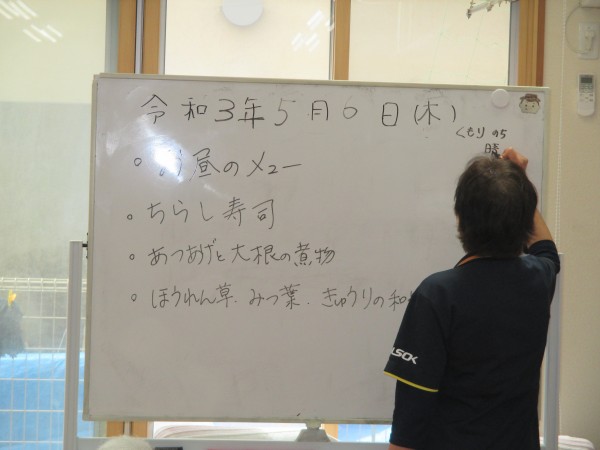 令和3年5月6日(木)
くもり のち
晴
・お昼のメュー
・ちらし寿司
・あつあげと大根の煮物
・ほうれん草.みつ葉.きゅうりの和
ALSOK